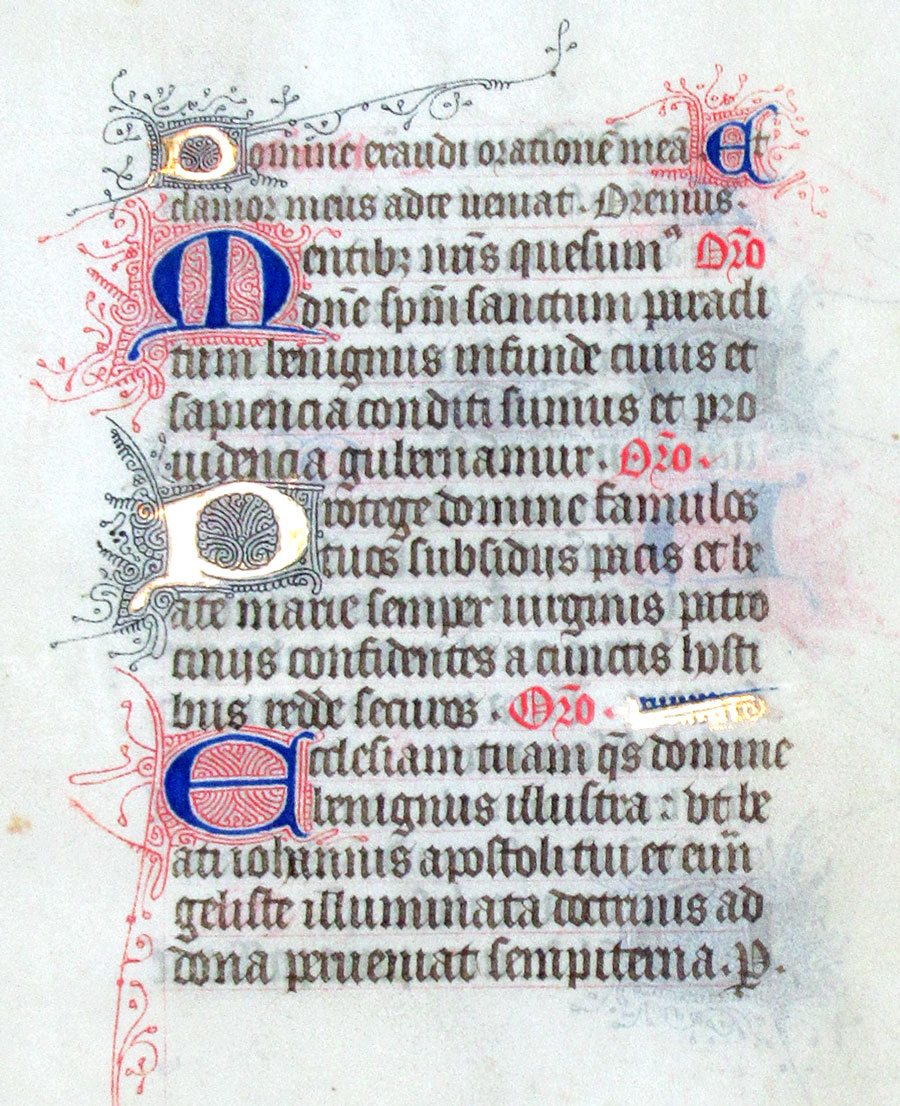 Domine exaudi orationē meā Et
clamor meus ad te ueniat. Oremus.
Mentibꝫ nr̄is quesumᵃ Or̄o
dn̄e sp̄m sanctum paracli
tum benignius infunde cuius et
sapiencia conditi sumus et pro
uidencia gubernamur. Or̄o.
Protege domine famulos
tuos subsidijs pacis et be
ate marie semper uirginis patro
cinijs confidentes a cunctis hosti
bus redde securos. Or̄o.
Ecclesiam tuam q̄s domine
benignius illustra : vt be
ati iohannis apostoli tui et eun̄
geliste illuminata doctrinis ad
dona perueniat sempiterna. P.